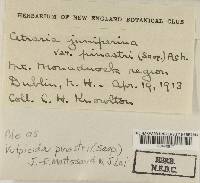 HERBARIUM OF NEW ENGLAND BOTANICAL CLUB
Cetraria juniperina
var. pinastri (Scop.) Ach.
Mt. Monadnock region
Dublin, N. H. - Apr. 19, 1913
Coll. C. H. Knowlton
Vulpicida pinastri (Scop.)
J.-E. Mattsson & M. J. Lai
HERB.
N.E.B.C.